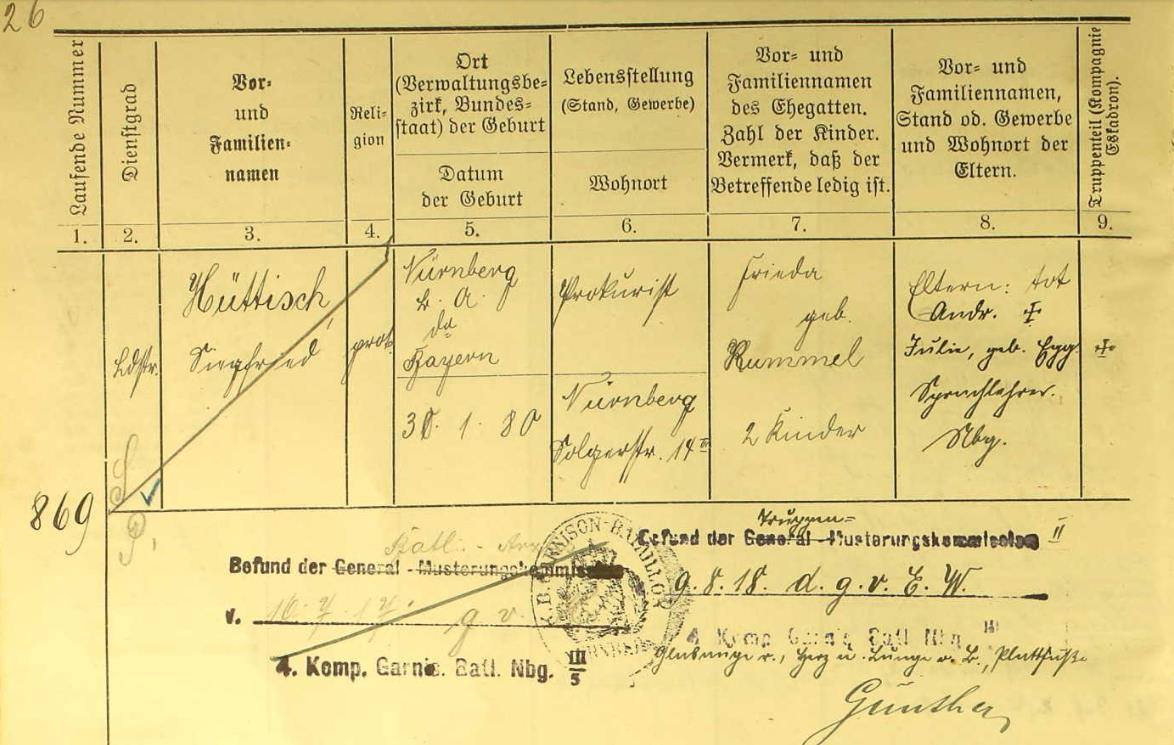 26
Laufende Nummer
Dienstgrad
Vor-
und
Familien-
namen
Reli-
gion
Ort
(Verwaltungsbe-
zirk, Bundes-
staat) der Geburt
Datum
der Geburt
Lebensstellung
(Stand, Gewerbe)
Wohnort
Vor- und
Familiennamen
des Ehegatten.
Zahl der Kinder.
Vermerk, daß der
Betreffende ledig ist.
Vor- und
Familiennamen,
Stand od. Gewerbe
und Wohnort der
Eltern.
Truppenteil (Kompagnie
Eskadron).
1. 2. 3. 4. 5. 6. 7. 8. 9.
869
Ldstr.
Hüttisch,
Siegfried
prot.
Nürnberg
B. A.
do
Bayern
30. 1. 80
Prokurist
Nürnberg
Solgerstr. 14 III
Frieda
geb.
Rummel
2 Kinder
Eltern: tot
Andr. ✠
Julie, geb. Egg ✠
Sprachlehrer.
Nbg.
Batl.-Arzt
Befund der General-Musterungskommission
v. 10.7.17. g. v.
4. Komp. Garnis. Batl. Nbg. III/5
K.B. GARNISON-BATAILLON
NÜRNBERG
Truppen-
Befund der General-Musterungskommission II
9.8.18. d. g. v. E. W.
4. Komp. Garnis. Batl. Nbg.
Glasauge r., Herz u. Lunge o. B., Plattfüße
Günther